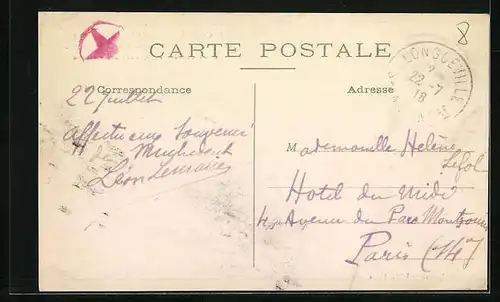 CARTE POSTALE
Correspondance
Adresse
LONGUEVILLE
22 -7
18
8
22 Juillet
Affectueux Souvenir
de
Léon Lemaire
Mademoiselle Hélène
Hotel du Midi
4, Avenue du Parc Montsouris
Paris (14e)